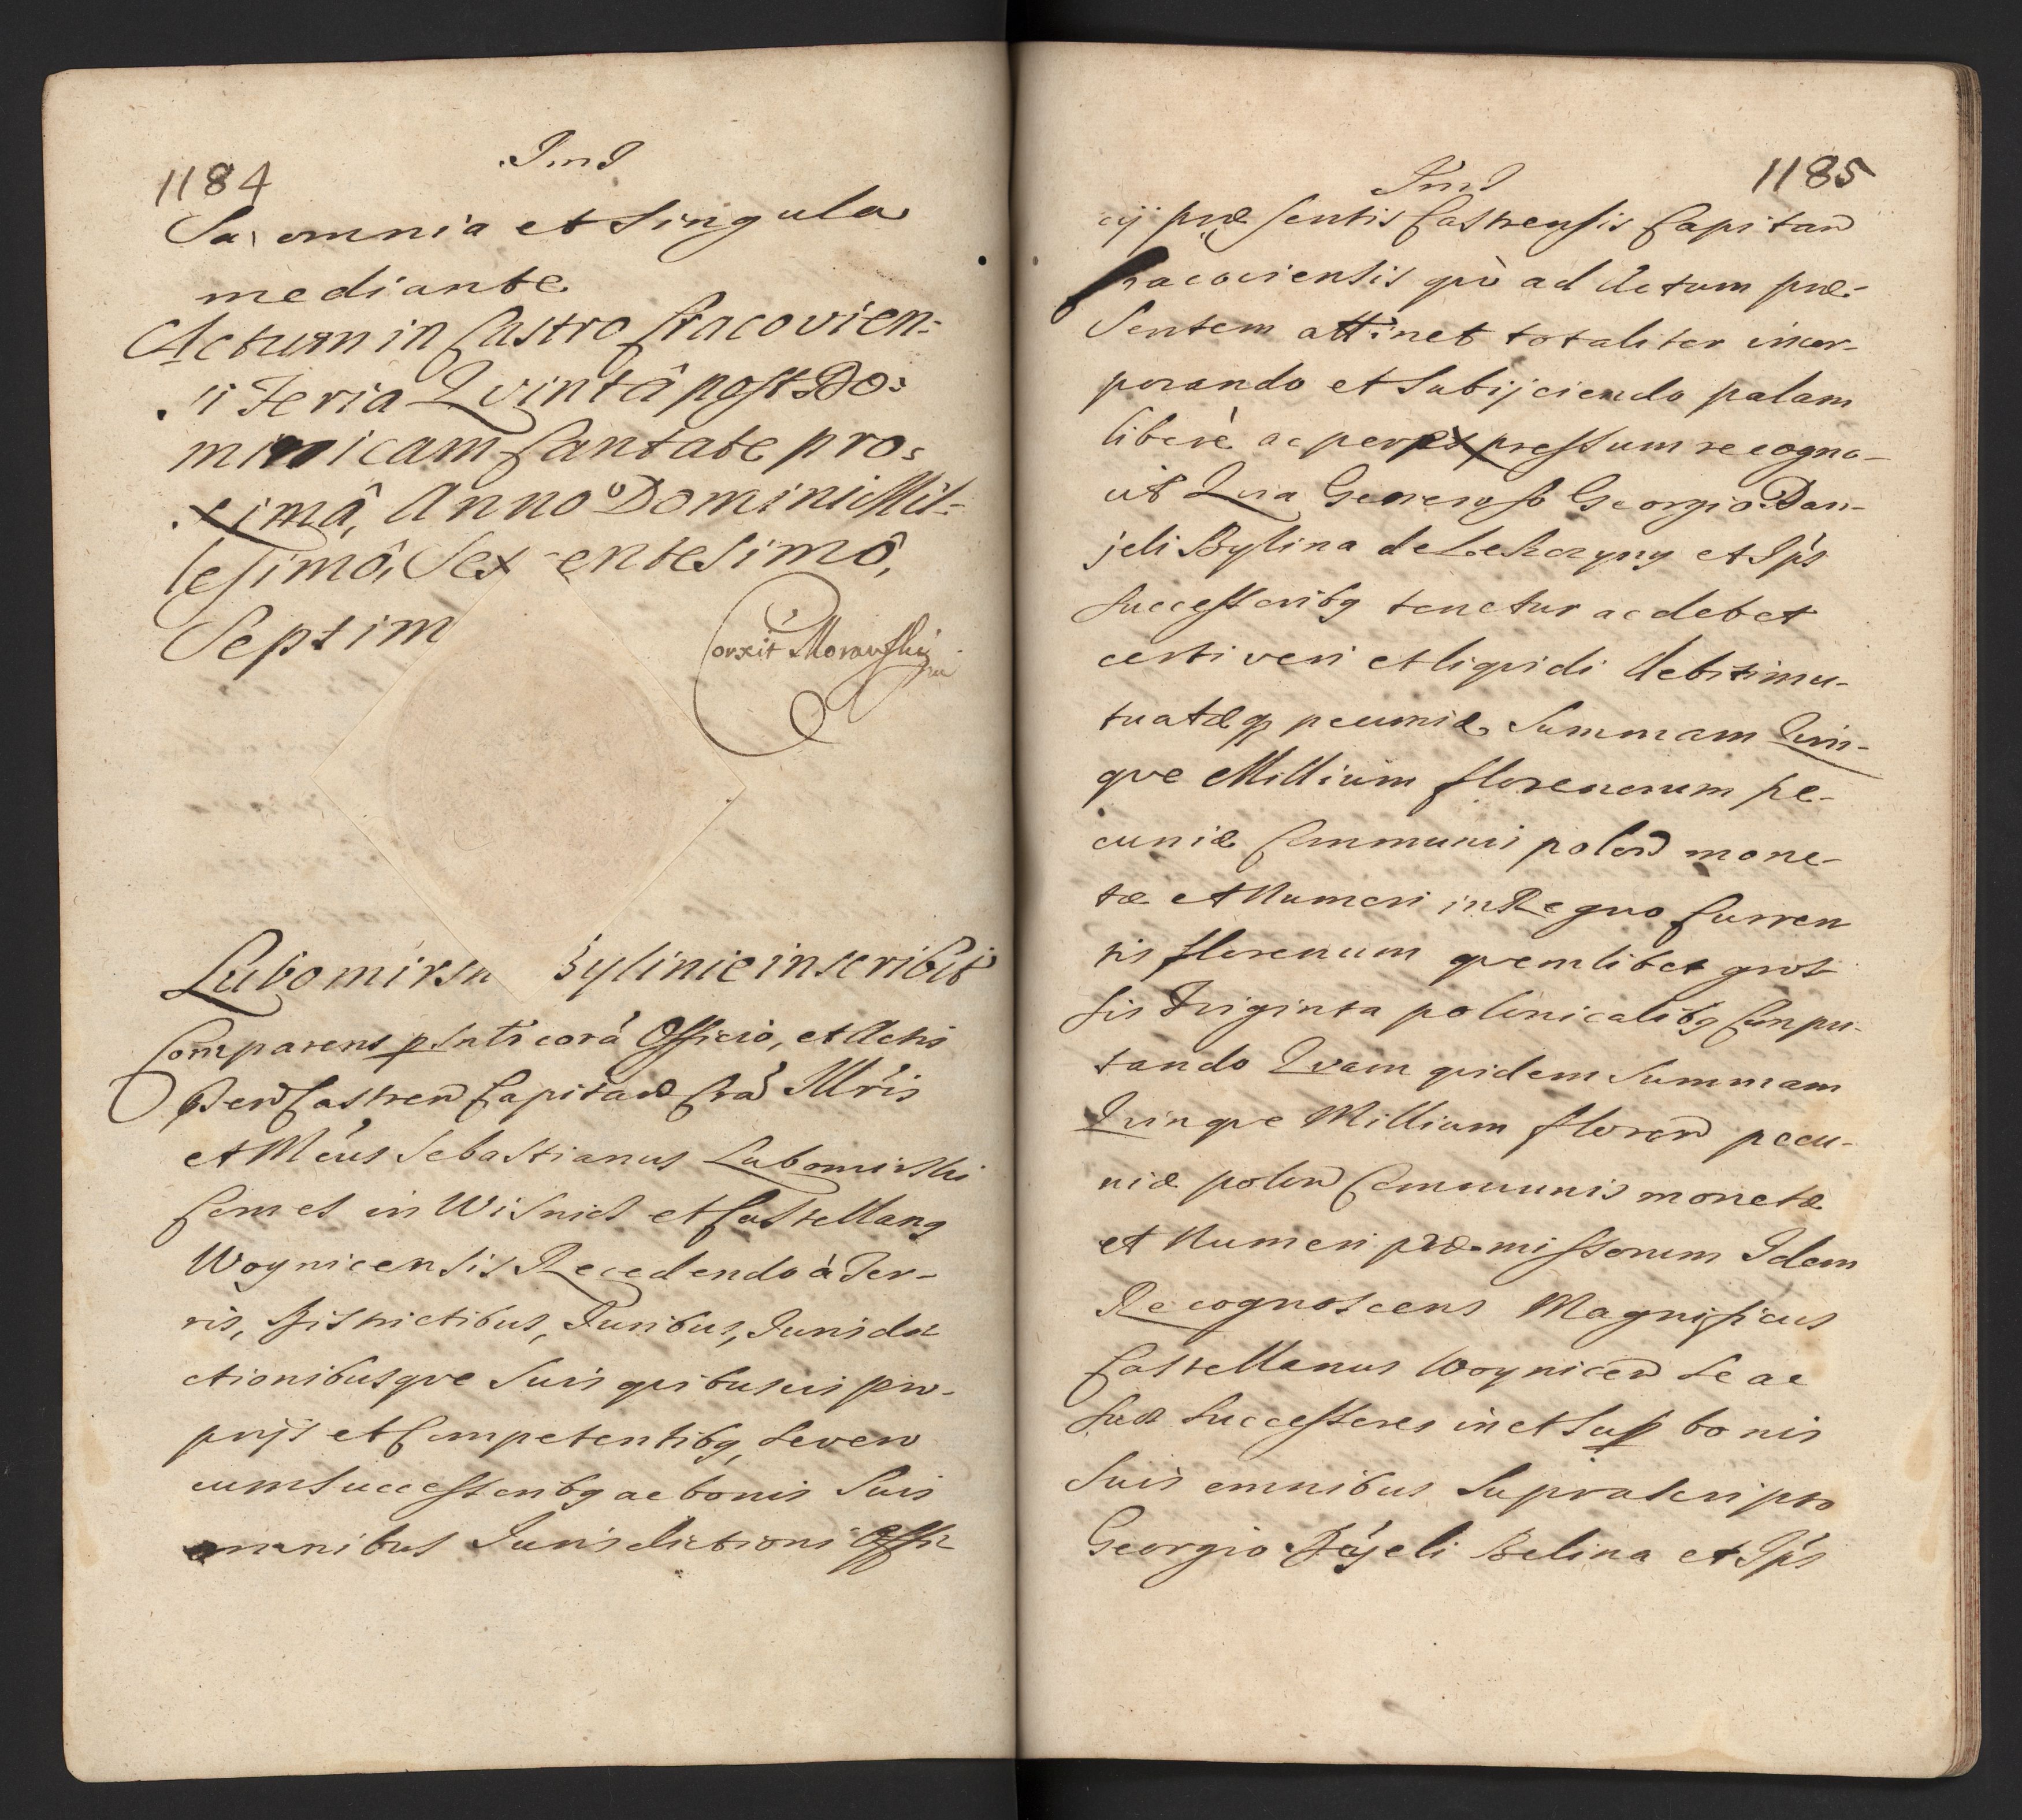 1184
Ind
sa, omnia et singula
mediante
Actum in Castro Cracovien:
si Feria Qvintâ post Do:
minicam Cantate pro:
ximâ, Anno Domini Mil-
lesimô, Sex entesimô,
Septim
Corxit Morawski
Lubomirsk Bylinie inscribit
Comparens psntr corã Officio, et Actis
pen Castren Capitan Cra Mris
et Mcus Sebastianus Lubomirski
Comes in Wisnicz et Castellang
Woynicensis Recedendo à Ter-
ris, Districtibus, Juribus, Jurisdi
ctionibusqve suis qvibusvis pro-
prijs et Competentibg, se vero
cum successoribg ac bonis suis
omnibus Jurisdictioni Offi
1185
Ind
cij præsentis Castrensis Capitan
Cracoviensis qvò ad Actum præ-
sentem attinet totaliter incor-
porando et subijciendo palam
liberè ac per expressum recogno-
vit Qvia Generoso Georgio Dan-
jeli Bylina de Leszczyny et Ips
successoribg tenetur ac debet
certi veri et liqvidi debiti mu-
tuatæqz pecuniæ summam Qvin-
qve Millium florenorum pe-
cuniæ Communis polon mone-
tæ et Numeri in Regno Curren
tis florenum qvemlibet gros
sis Triginta polonicalibg Compu-
tando Qvam qvidem summam
Qvinqve Millium floren pecu-
niæ polon Communis monetæ
et Numeri præmissorum Idem
Recognoscens Magnificus
Castellanus Woynicen se ac
suos successores in et sup bonis
suis omnibus suprascripto
Georgio Dãjeli Belina et Ips